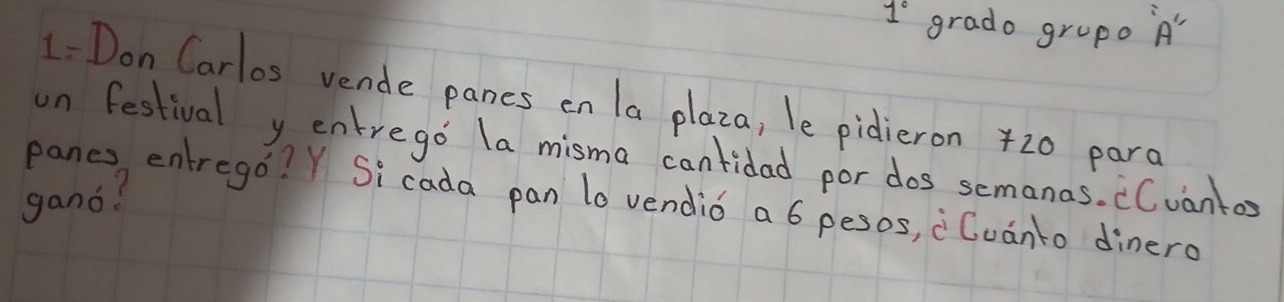 1° grado grupo "A"
1.- Don Carlos vende panes en la plaza, le pidieron 720 para
un festival y entregó la misma cantidad por dos semanas. ¿Cuántos
panes entregó? Y Si cada pan lo vendió a 6 pesos, ¿Cuánto dinero
ganó?